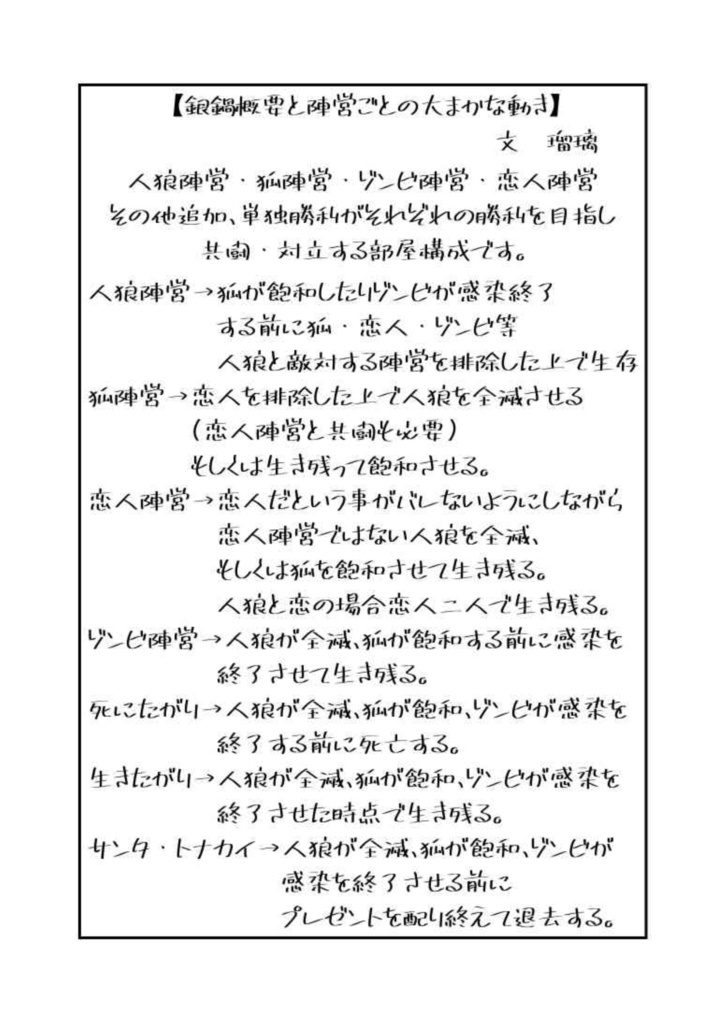 【銀鍋概要と陣営ごとの大まかな動き】
文　瑠璃
人狼陣営・狐陣営・ゾンビ陣営・恋人陣営
その他追加、単独勝利がそれぞれの勝利を目指し
共闘・対立する部屋構成です。
人狼陣営→狐が飽和したりゾンビが感染終了
する前に狐・恋人・ゾンビ等
人狼と敵対する陣営を排除した上で生存
狐陣営→恋人を排除した上で人狼を全滅させる
（恋人陣営と共闘も必要）
もしくは生き残って飽和させる。
恋人陣営→恋人だという事がバレないようにしながら
恋人陣営ではない人狼を全滅、
もしくは狐を飽和させて生き残る。
人狼と恋の場合恋人二人で生き残る。
ゾンビ陣営→人狼が全滅、狐が飽和する前に感染を
終了させて生き残る。
死にたがり→人狼が全滅、狐が飽和、ゾンビが感染を
終了する前に死亡する。
生きたがり→人狼が全滅、狐が飽和、ゾンビが感染を
終了させた時点で生き残る。
サンタ・トナカイ→人狼が全滅、狐が飽和、ゾンビが
感染を終了させる前に
プレゼントを配り終えて退去する。